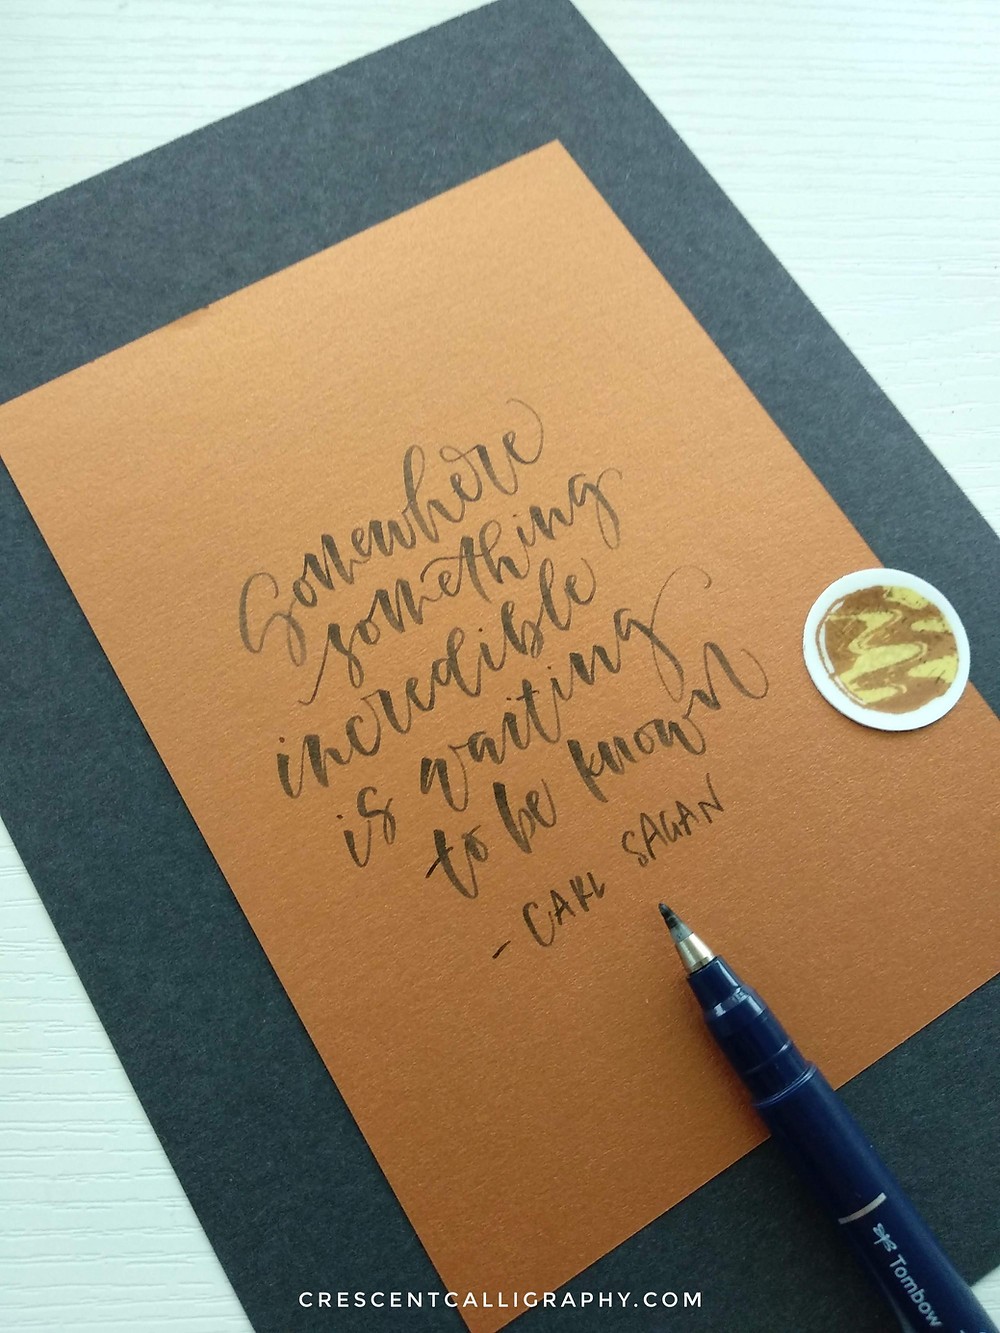 Somewhere
something
incredible
is waiting
to be known
- CARL SAGAN
Tombow
CRESCENTCALLIGRAPHY.COM